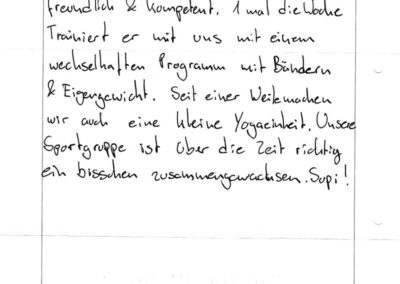 freundlich & kompetent. 1 mal die Woche
Trainiert er mit uns mit einem
wechselhaften Programm mit Bändern
& Eigengewicht. Seit einer Weile machen
wir auch eine kleine Yogaeinheit. Unsere
Sportgruppe ist über die Zeit richtig
ein bisschen zusammengewachsen. Supi!